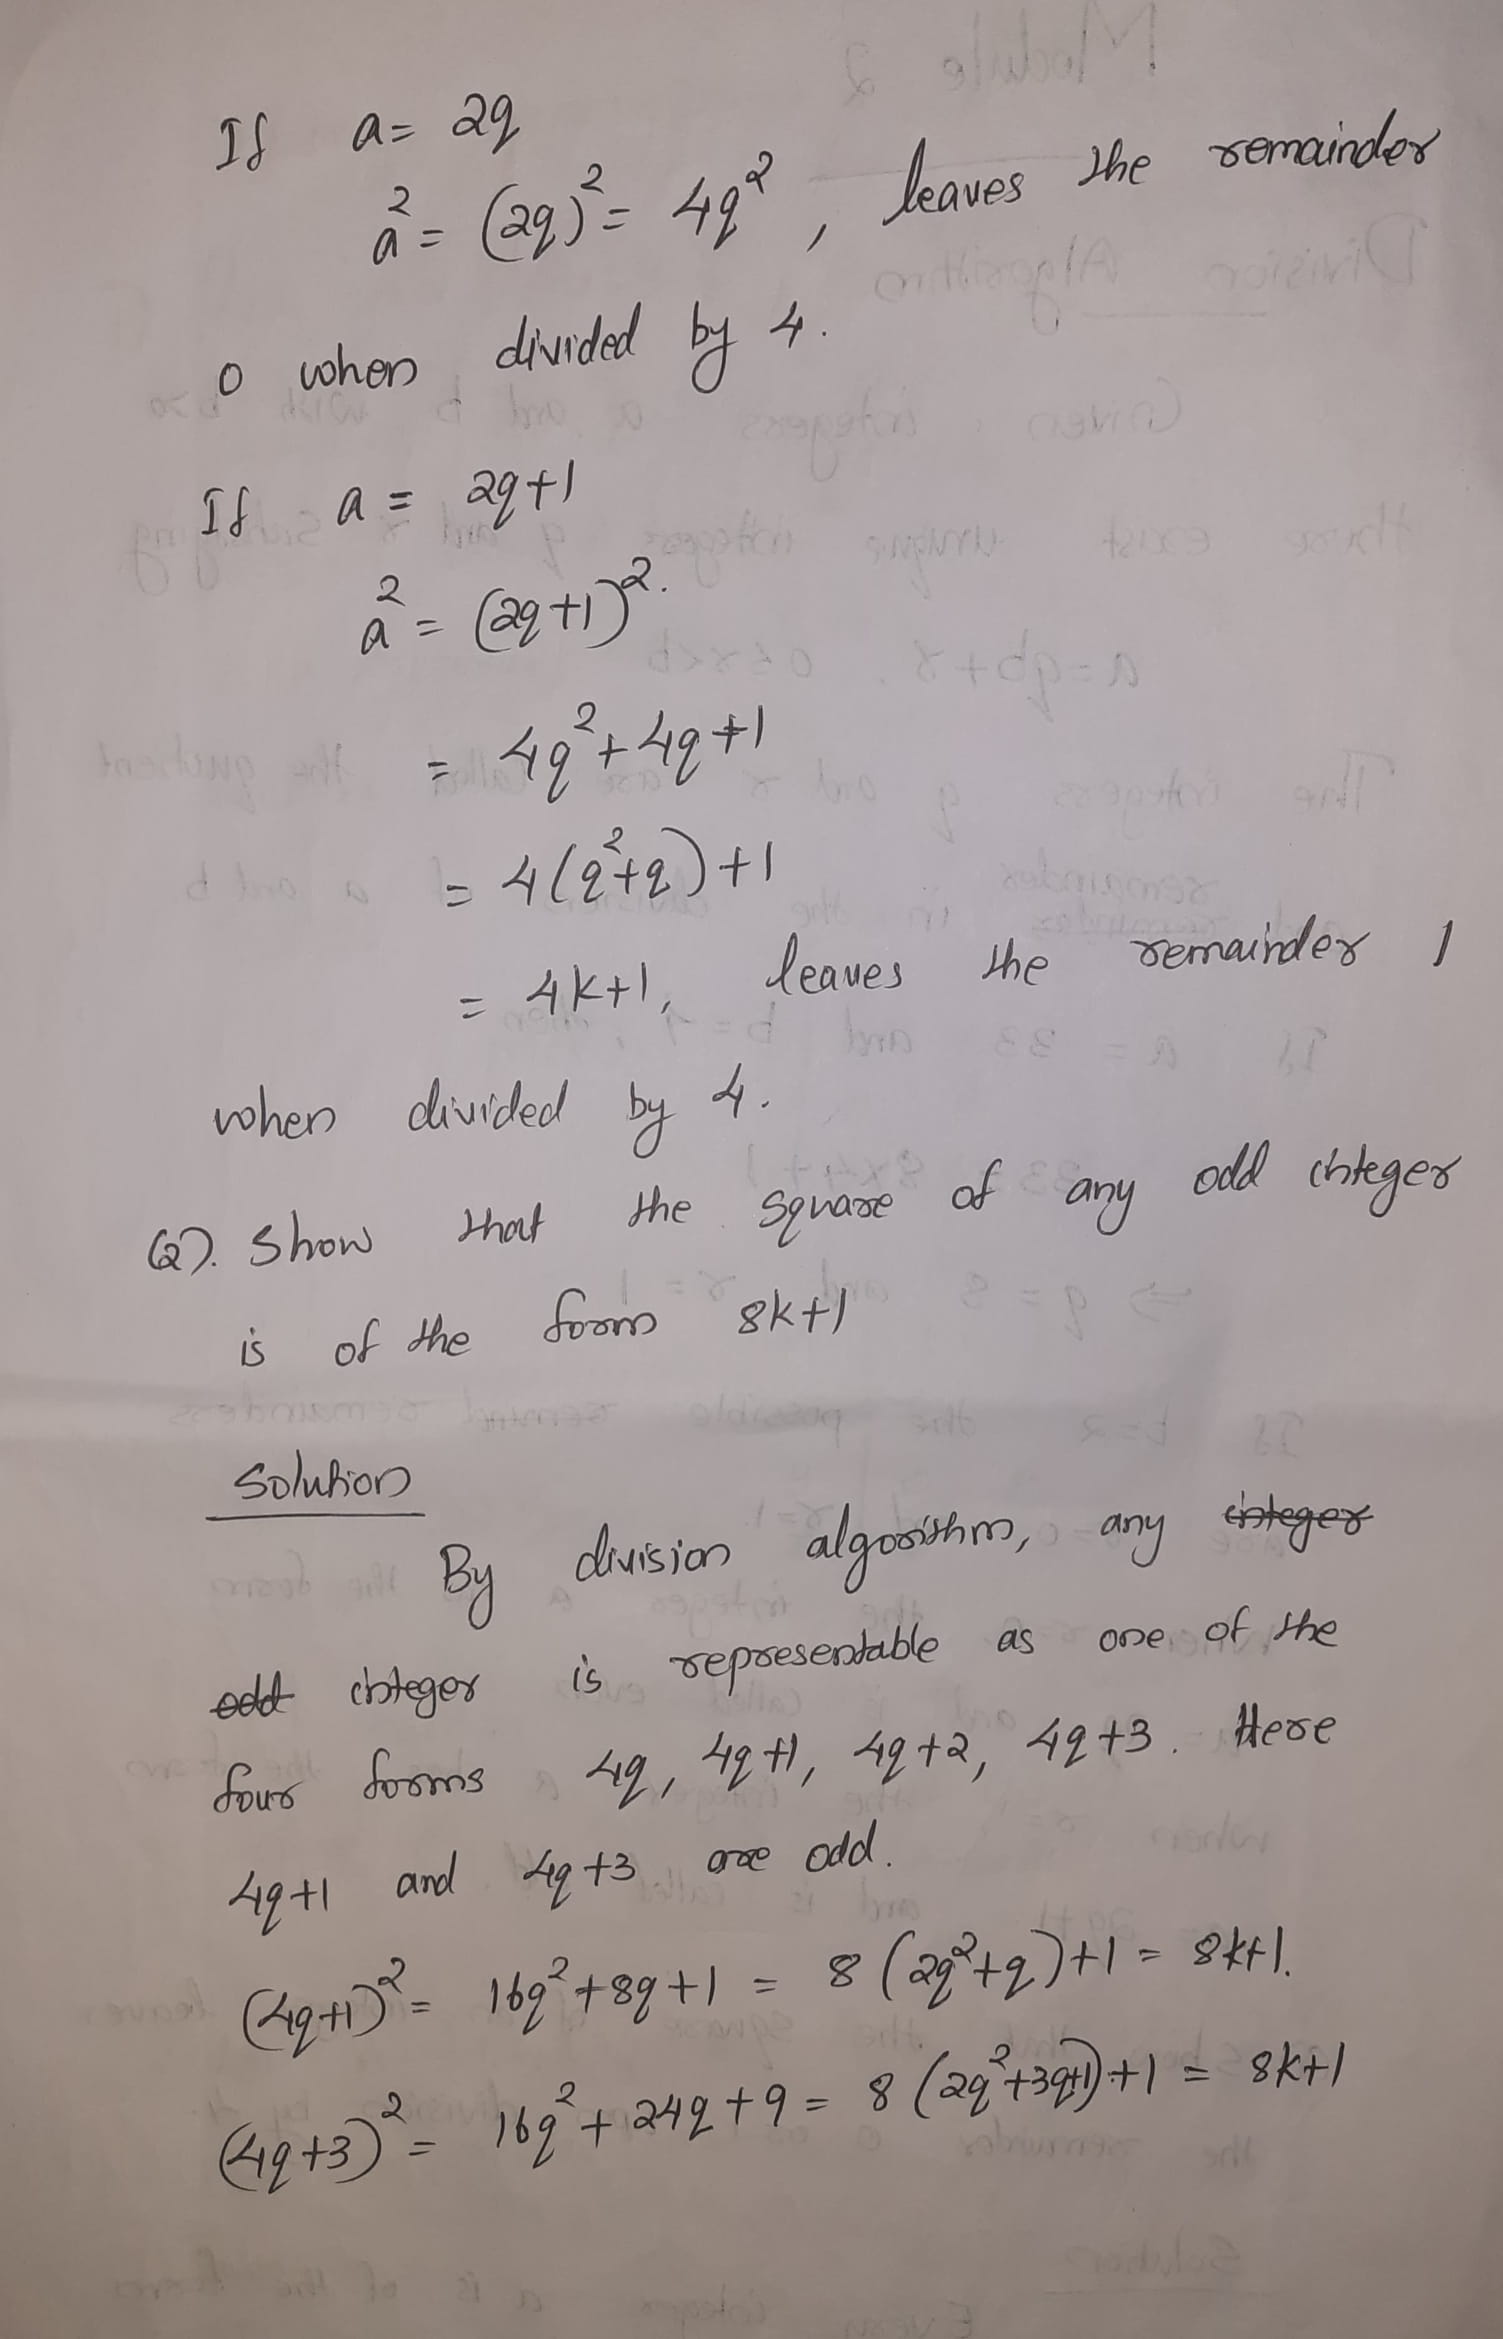 If a = 2q
a² = (2q)² = 4q², leaves the remainder
0 when divided by 4.
If a = 2q+1
a² = (2q+1)².
= 4q²+4q+1
= 4(q²+q)+1
= 4k+1, leaves the remainder 1
when divided by 4.
Q). Show that the square of any odd integer
is of the form 8k+1
Solution
By division algorithm, any integer
odd integer is representable as one of the
four forms 4q, 4q+1, 4q+2, 4q+3. Here
4q+1 and 4q+3 are odd.
(4q+1)² = 16q²+8q+1 = 8(2q²+q)+1 = 8k+1.
(4q+3)² = 16q²+24q+9 = 8(2q²+3q+1)+1 = 8k+1